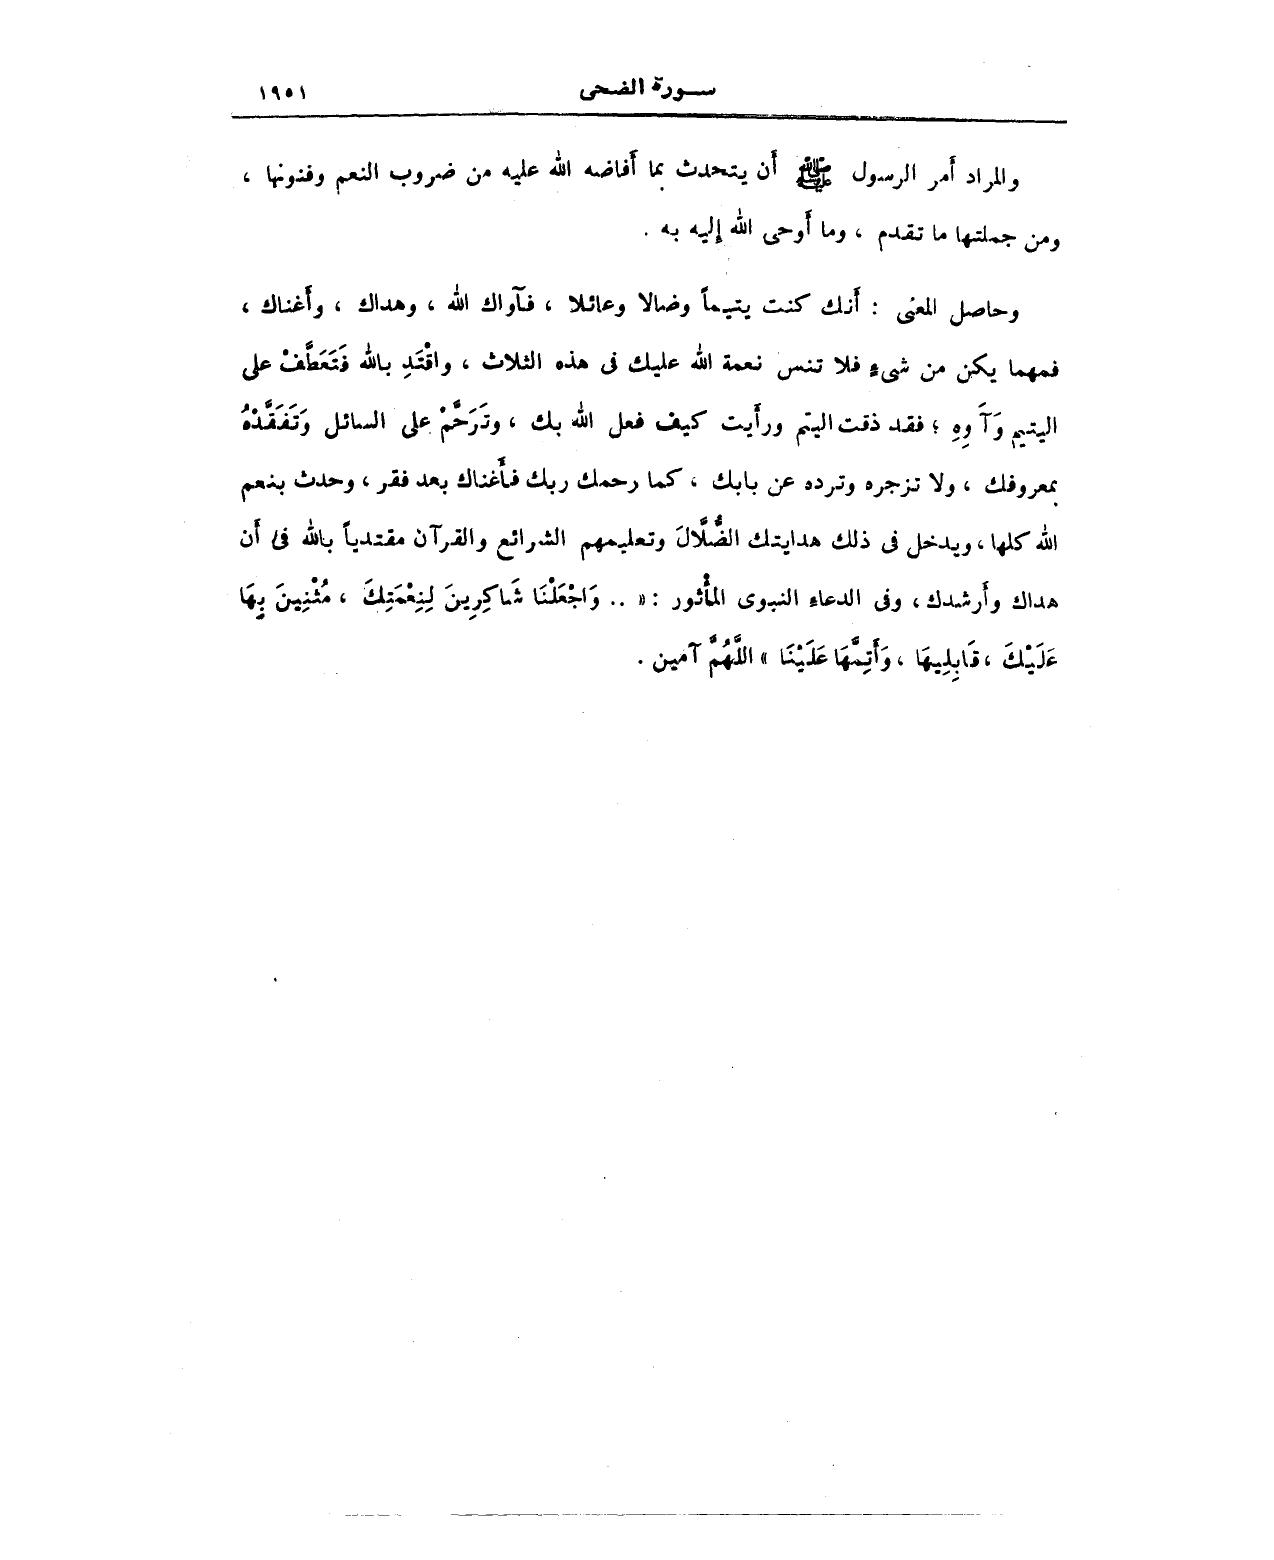 سورة الضحى ١٩٥١
والمراد أمر الرسول ﷺ أن يتحدث بما أفاضه الله عليه من ضروب النعم وفنونها ،
ومن جملتها ما تقدم ، وما أوحى الله إليه به .
وحاصل المعنى : أنك كنت يتيماً وضالا وعائلا ، فآواك الله ، وهداك ، وأغناك ،
فمهما يكن من شىء فلا تنس نعمة الله عليك فى هذه الثلاث ، واقْتَدِ بالله فَتَعَطَّفْ على
اليتيم وَآوِهِ ؛ فقد ذقت اليتم ورأيت كيف فعل الله بك ، وتَرَحَّمْ على السائل وَتَفَقَّدْهُ
بمعروفك ، ولا تزجره وترده عن بابك ، كما رحمك ربك فأغناك بعد فقر ، وحدث بنعم
الله كلها ، ويدخل فى ذلك هدايتك الضُّلَّالَ وتعليمهم الشرائع والقرآن مقتدياً بالله فى أن
هداك وأرشدك ، وفى الدعاء النبوى المأثور : « .. وَاجْعَلْنَا شَاكِرِينَ لِنِعْمَتِكَ ، مُثْنِينَ بِهَا
عَلَيْكَ ، قَابِلِيهَا ، وَأَتِمَّهَا عَلَيْنَا » اللَّهُمَّ آمين .